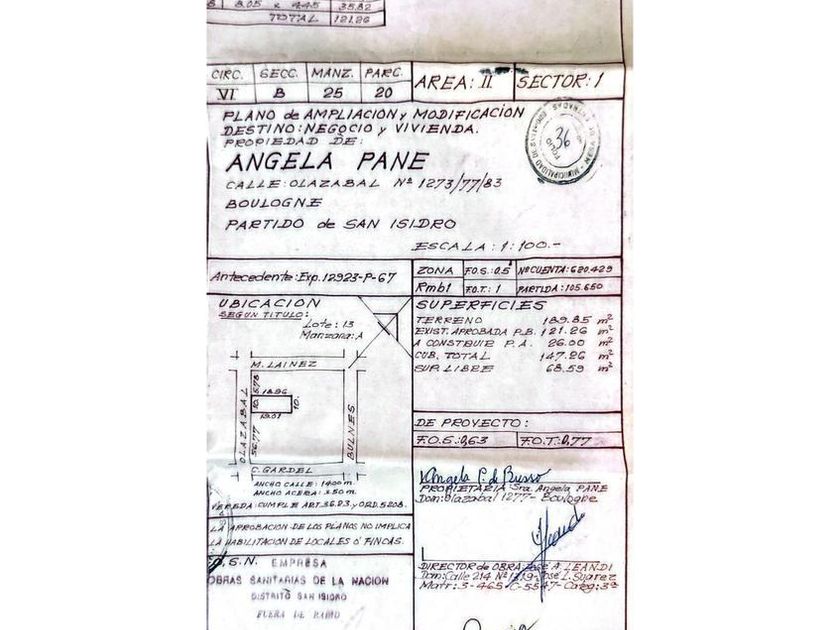 8.05 x 4.45 35.82
TOTAL 121.26
CIRC. SECC. MANZ. PARC. AREA: II SECTOR: 1
VI B 25 20
PLANO de AMPLIACION y MODIFICACION
DESTINO: NEGOCIO y VIVIENDA.
PROPIEDAD DE:
ANGELA PANE
CALLE: OLAZABAL Nº 1273/77/83
BOULOGNE
PARTIDO de SAN ISIDRO
ESCALA: 1:100.-
FOLIO
36
MUNICIPALIDAD DE
Antecedente: Exp. 12923-P-67
ZONA F.O.S.: 0.5 Nº CUENTA: 620.429
Rmb1 F.O.T.: 1 PARTIDA: 105.650
UBICACION
SEGUN TITULO:
Lote: 13
Manzana: A
M. LAINEZ
OLAZABAL
BULNES
5.78
18.96
10.
10.
19.01
56.77
C. GARDEL
ANCHO CALLE: 14.00 m.
ANCHO ACERA: 3.50 m.
VEREDA: CUMPLE ART. 36.23. y ORD. 5208.
SUPERFICIES
TERRENO 189.85 m²
EXIST. APROBADA P.B. 121.26 m²
A CONSTRUIR P.A. 26.00 m²
CUB. TOTAL 147.26 m²
SUP. LIBRE 68.59 m²
DE PROYECTO:
F.O.S.: 0,63 F.O.T.: 0,77
LA APROBACION DE LOS PLANOS NO IMPLICA
LA HABILITACION DE LOCALES O FINCAS.
O.S.N. EMPRESA
OBRAS SANITARIAS DE LA NACION
DISTRITO SAN ISIDRO
FUERA DE RADIO
Angela P. de Busso
PROPIETARIA: Sra. Angela PANE
Dom: Olazabal 1277- Boulogne
DIRECTOR de OBRA: José A. LEANDI
Dom: Calle 214 Nº 1219- José L. Suarez
Matr: 3-465-C-5547-Categ: 3ª